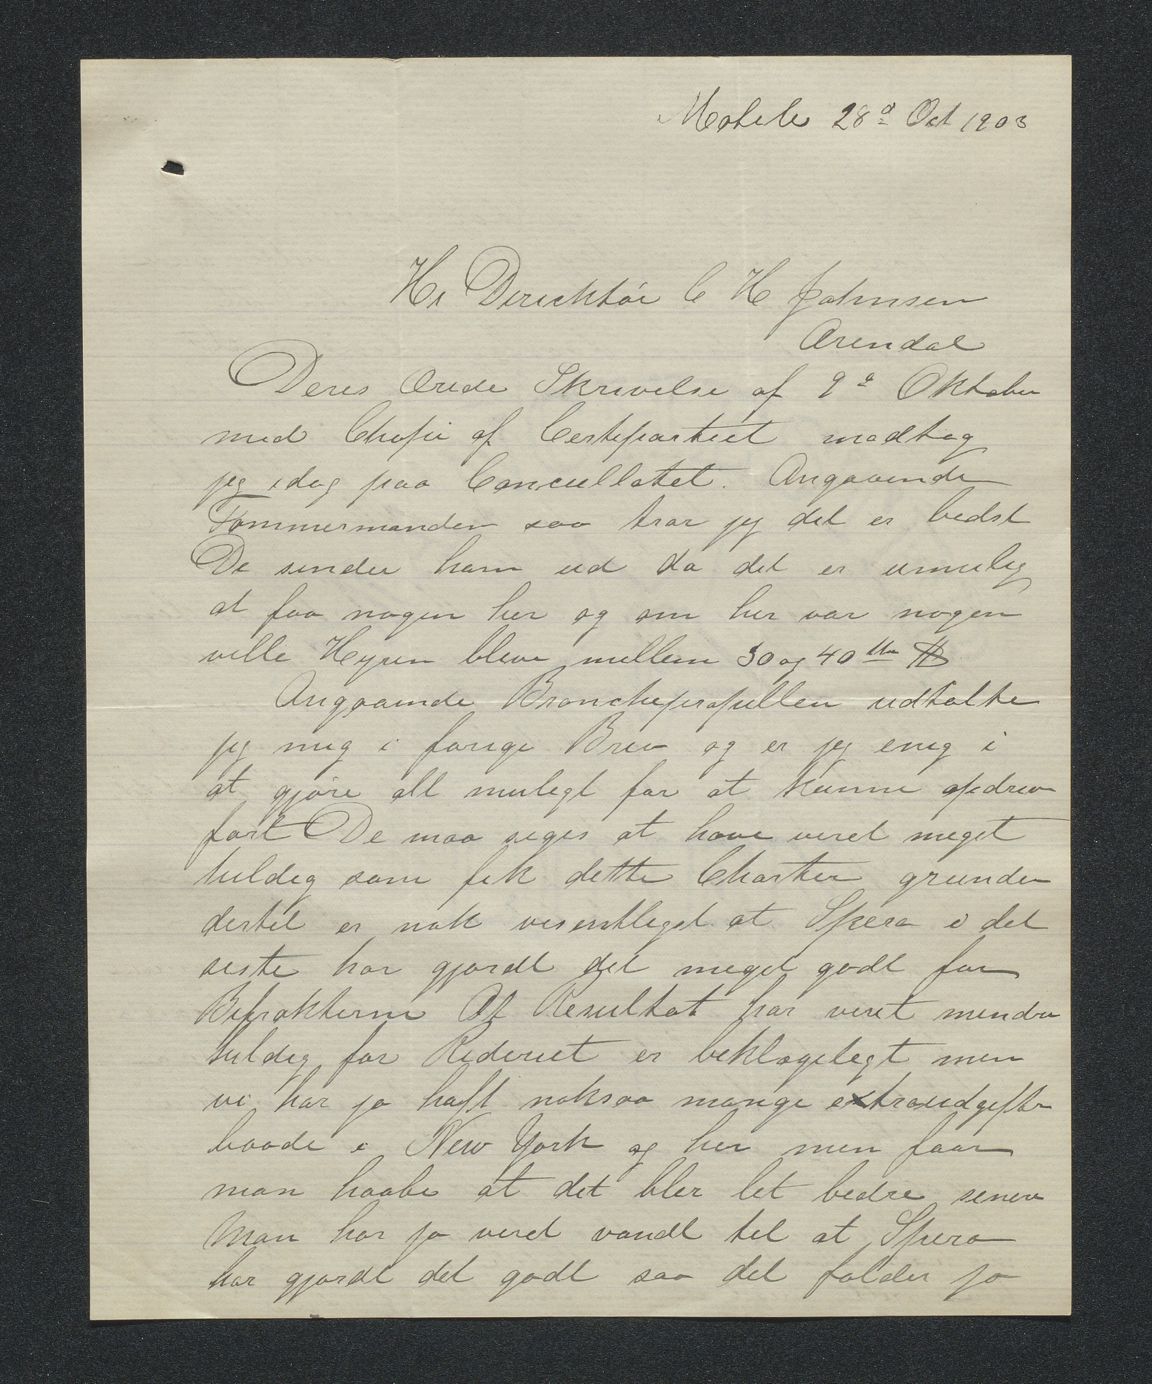 Mobile 28d Oct 1903
Hr Direcktör C H Johnsen
Arendal
Deres Ærede Skrivelse af 9d Oktober
med Chopi af Certepartiet modtog
jeg idag paa Concullatet. Angaaende
Tømmermanden saa tror jeg det er bedst
De sender ham ud da det er umulig
at faa nogen her og om her var nogen
ville Hyren bleve mellem 30 og 40 $
Angaaende Bronchepropellen udtalte
jeg mig i forige Brev og er jeg enig i
at gjöre alt muligt for at kunne opdrive
fart De maa siges at have veret meget
heldig som fik dette Charter grunden
dertil er nok vesentligst at Spera i det
siste har gjordt det meget godt for
Befrakterne At Resultat har veret mendre
heldig for Rederiet er beklageligt men
vi har jo haft noksaa mange extraudgifter
baade i New York og her men faar
man haabe at det bler let bedre senere
Man har jo veret vandt til at Spera
har gjordt det godt saa det falder jo